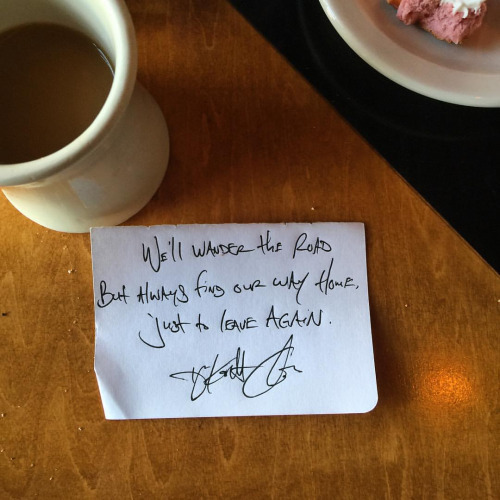 We'll wander the Road
But Always find our way Home.
just to leave Again.